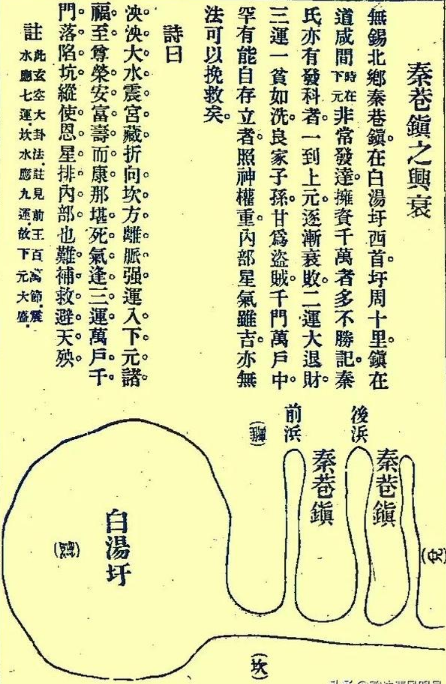 秦巷鎮之興衰
無錫北鄉秦巷鎮。在白湯圩西首。圩周十里。鎮在
道咸間時在下元非常發達。擁資千萬者多不勝記。秦
氏亦有發科者。一到上元逐漸衰敗。二運大退財。
三運一貧如洗。良家子孫甘為盜賊。千門萬戶中。
罕有能自存立者。照神權重。內部星氣雖吉。亦無
法可以挽救矣。
詩曰
泱泱大水震宮藏。折向坎方離脈强。運入下元諸
福至。尊榮安富壽而康。那堪死氣逢三運。萬戶千
門落陷坑。縱使恩星排內部。也難補救避天殃。
註 此玄空大卦法。註見前王百萬節。震
水應七運。坎水應九運。故下元大盛。
後浜
前浜
秦巷鎮
秦巷鎮
白湯圩
(坎)